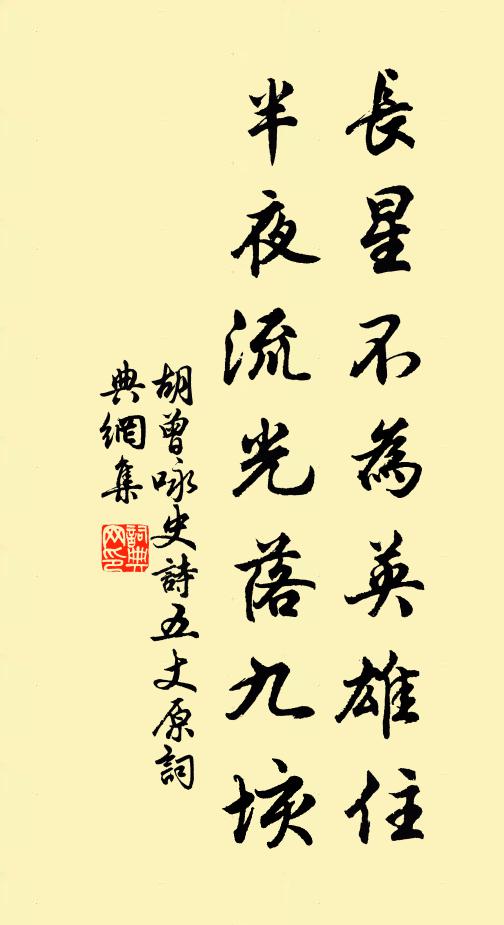 長星不為英雄住
半夜流光落九垓
胡曾咏史詩五丈原詞
典網集
詞典
网印